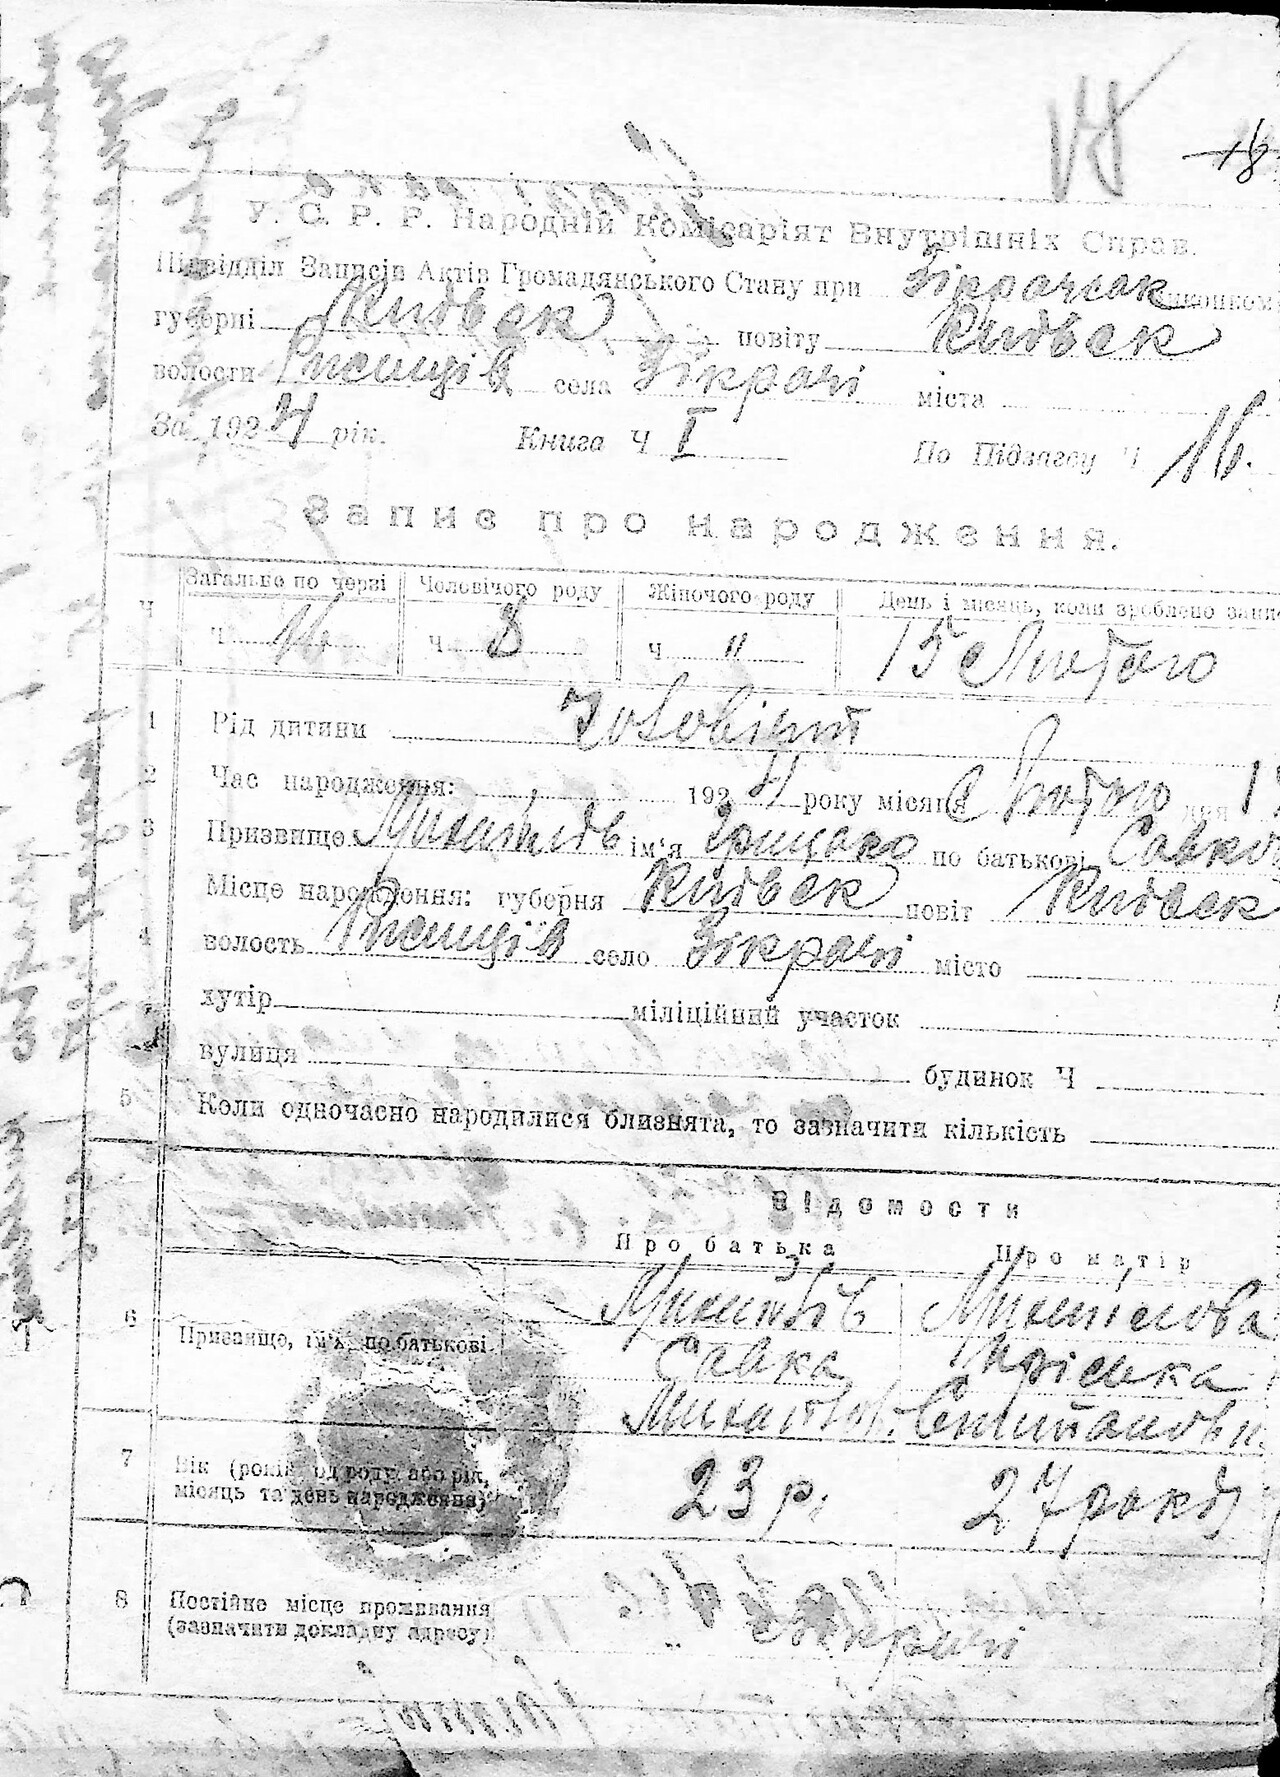 18
У. С. Р. Р. Народній Комісаріят Внутрішніх Справ.
Підвідділ Записів Актів Громадянського Стану при Зікрачськ виконком
губерні Київськ повіту Київськ
волости села Зікрачі міста
За 1924 рік. Книга Ч I По Підзагсу Ч 16.
Запис про народження.
Ч Загальне по черзі Чоловічого роду Жіночого роду День і місяць, коли зроблено запис
Ч 16 Ч 8 Ч " 15 Лютого
1 Рід дитини Чоловічий
2 Час народження: 1924 року місяця Лютого дня
3 Призвище ім'я Грицько по батькові
Місце народження: губерня Київськ повіт Київськ
4 волость село Зікрачі місто
хутір міліційний участок
вулиця будинок Ч
5 Коли одночасно народилися близнята, то зазначити кількість
Відомости
Про батька Про матір
6 Призвище, ім'я, по батькові
Савка
7 Вік (років од роду або рік, місяць та день народження) 23 р. 27 років
8 Постійне місце проживання Зікрачі
(зазначити докладну адресу)